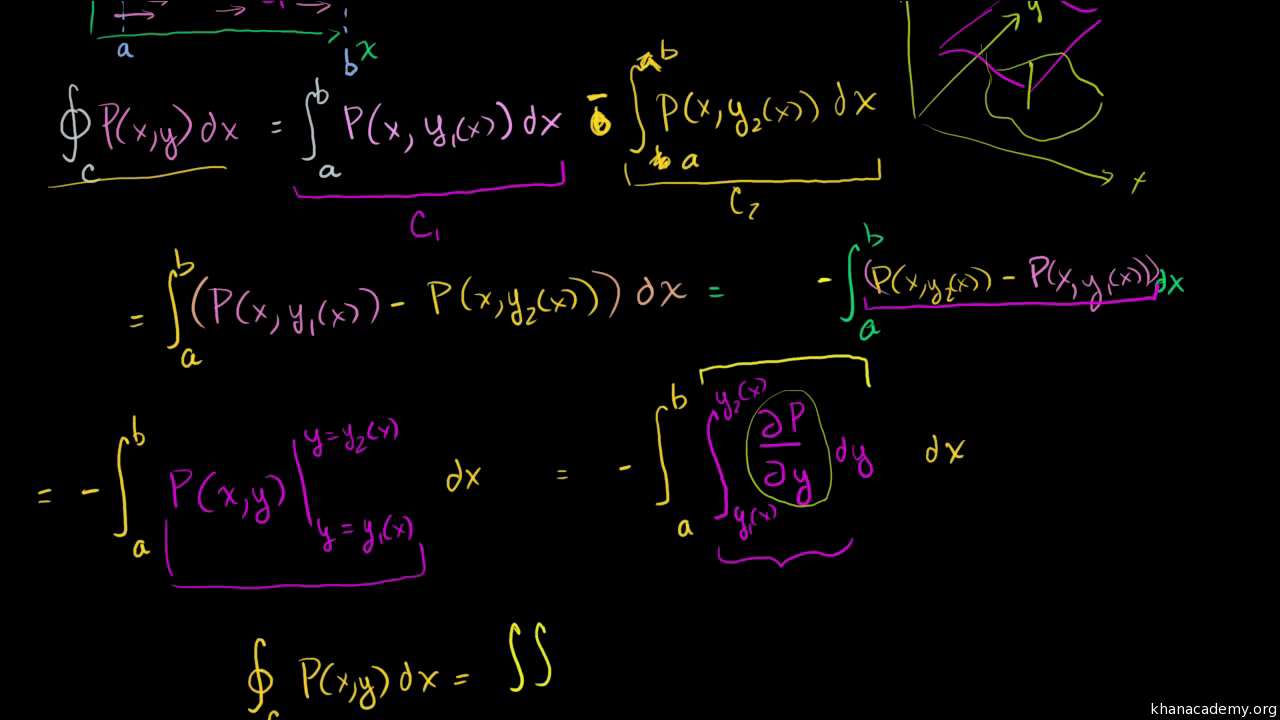 y
a b x
∮_C P(x,y) dx = ∫_a^b P(x, y₁(x)) dx - ∫_a^b P(x, y₂(x)) dx
x
C₁ C₂
= ∫_a^b (P(x, y₁(x)) - P(x, y₂(x))) dx = - ∫_a^b (P(x, y₂(x)) - P(x, y₁(x))) dx
= - ∫_a^b P(x,y) |_{y = y₁(x)}^{y = y₂(x)} dx = - ∫_a^b ∫_{y₁(x)}^{y₂(x)} ∂P/∂y dy dx
∮_C P(x,y) dx = ∬
khanacademy.org